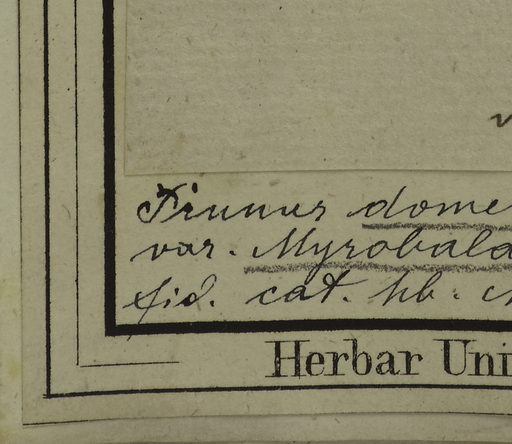 Prunus dome
var. Myrobala
fid. cat. hb.
Herbar Uni